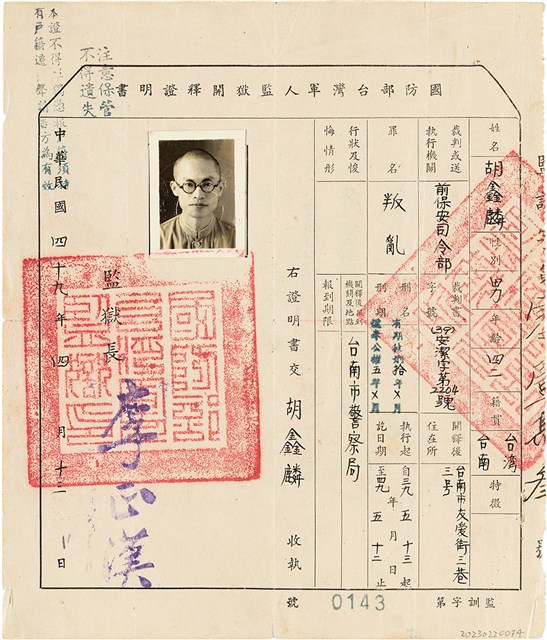 國防部台灣軍人監獄開釋證明書
姓名 胡鑫麟 性別 男 年齡 四二 籍貫 台灣台南 特徵
裁判或送執行機關 前保安司令部 裁判書字號 (39)安潔字第2204號 開釋後住在所 台南市友愛街三巷三號
罪名 叛亂 刑名刑期 有期徒刑拾年×月 褫奪公權五年×月 執行起訖日期 自三九年五月十三日起至四九年五月十二日止
行狀及悛悔情形 開釋後報到機關及地點 台南市警察局
報到期限
右證明書交 胡鑫麟 收執
監獄長 李正漢
中華民國四十九年四月十三日
注意保管
不得遺失
本證不得
有戶籍
監訓字第 0143 號
20230220074